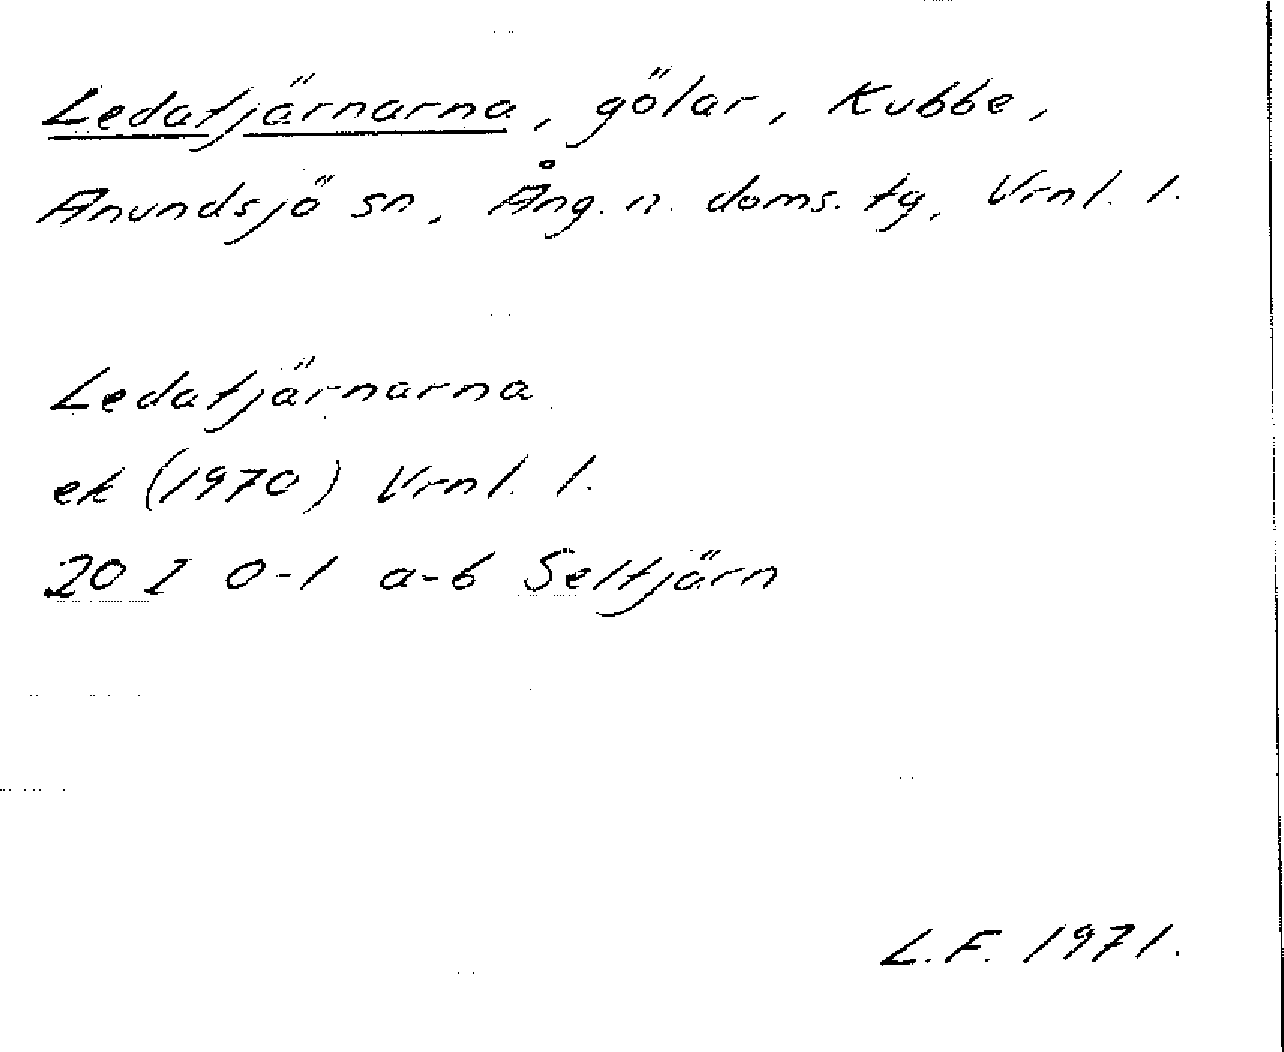 Ledatjärnarna, gölar, Kubbe,
Anundsjö sn, Ång. n. doms. tg, Vrnl. l.
Ledatjärnarna
ek (1970) Vrnl. l.
20 I 0-1 a-b Seltjärn
L.F. 1971.